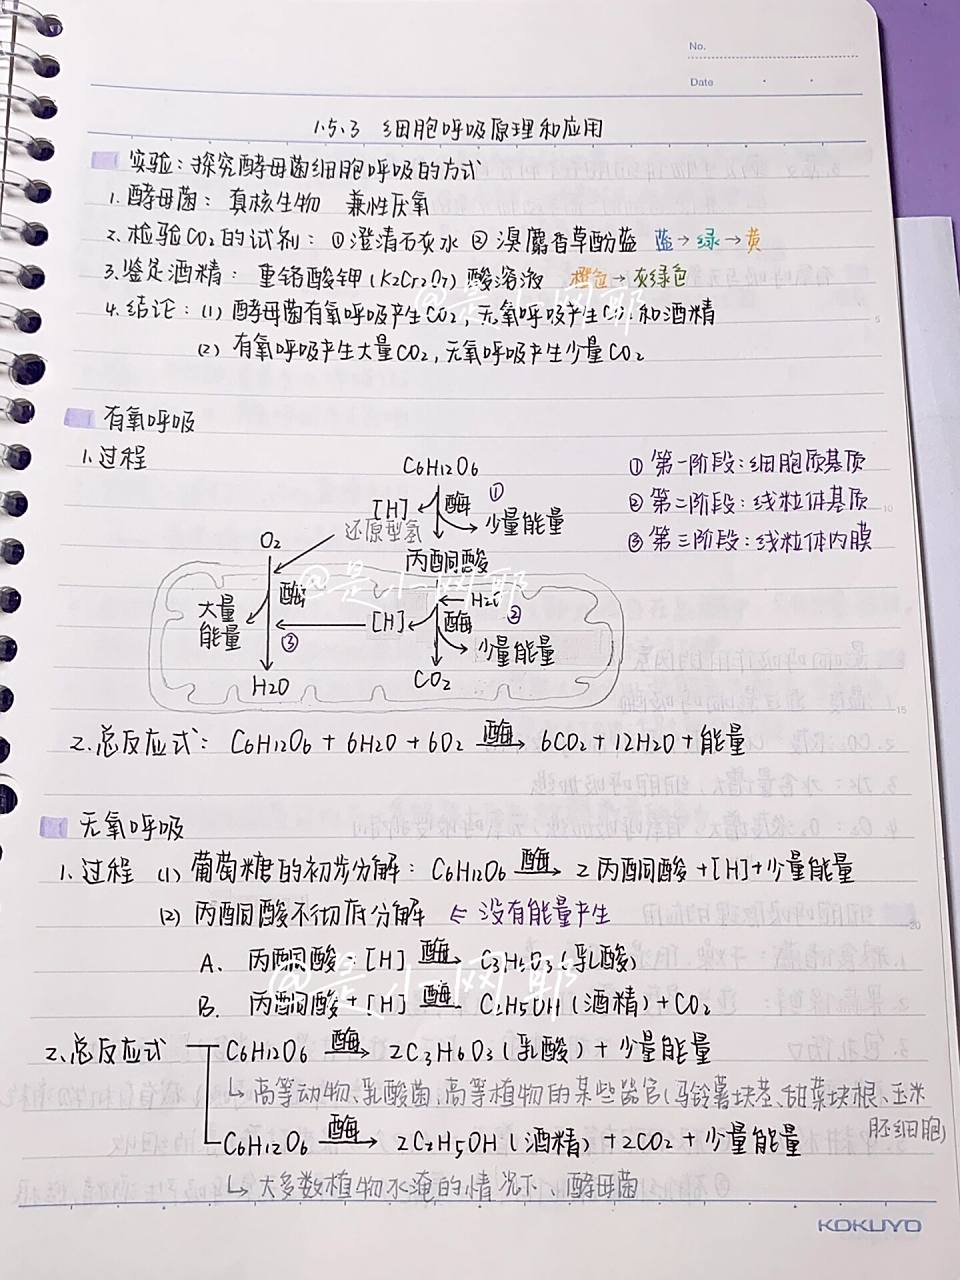 No.
Date
1.5.3 细胞呼吸原理和应用
实验:探究酵母菌细胞呼吸的方式
1.酵母菌: 真核生物 兼性厌氧
2.检验CO2的试剂: ①澄清石灰水 ②溴麝香草酚蓝 蓝→绿→黄
3.鉴定酒精: 重铬酸钾(K2Cr2O7)酸溶液 橙色→灰绿色
4.结论:(1) 酵母菌有氧呼吸产生CO2,无氧呼吸产生CO2和酒精
(2) 有氧呼吸产生大量CO2,无氧呼吸产生少量CO2
@是小网耶
有氧呼吸
1.过程
C6H12O6
① 第一阶段:细胞质基质
② 第二阶段:线粒体基质
③ 第三阶段:线粒体内膜
[H] 酶 ①
还原型氢 少量能量
O2
丙酮酸
@是小网耶
大量能量 酶 ③
[H] 酶 H2O ②
少量能量
H2O
CO2
2.总反应式: C6H12O6 + 6H2O + 6O2 酶→ 6CO2 + 12H2O + 能量
无氧呼吸
1.过程 (1) 葡萄糖的初步分解: C6H12O6 酶→ 2丙酮酸 +[H]+少量能量
(2) 丙酮酸不彻底分解 ⇐ 没有能量产生
A. 丙酮酸+[H] 酶→ C3H6O3(乳酸)
@是小网耶
B. 丙酮酸+[H] 酶→ C2H5OH(酒精)+CO2
2.总反应式 C6H12O6 酶→ 2C3H6O3(乳酸) + 少量能量
↳ 高等动物、乳酸菌,高等植物的某些器官(马铃薯块茎、甜菜块根、玉米
胚细胞)
C6H12O6 酶→ 2C2H5OH(酒精) +2CO2 + 少量能量
↳ 大多数植物水淹的情况下、酵母菌
KOKUYO